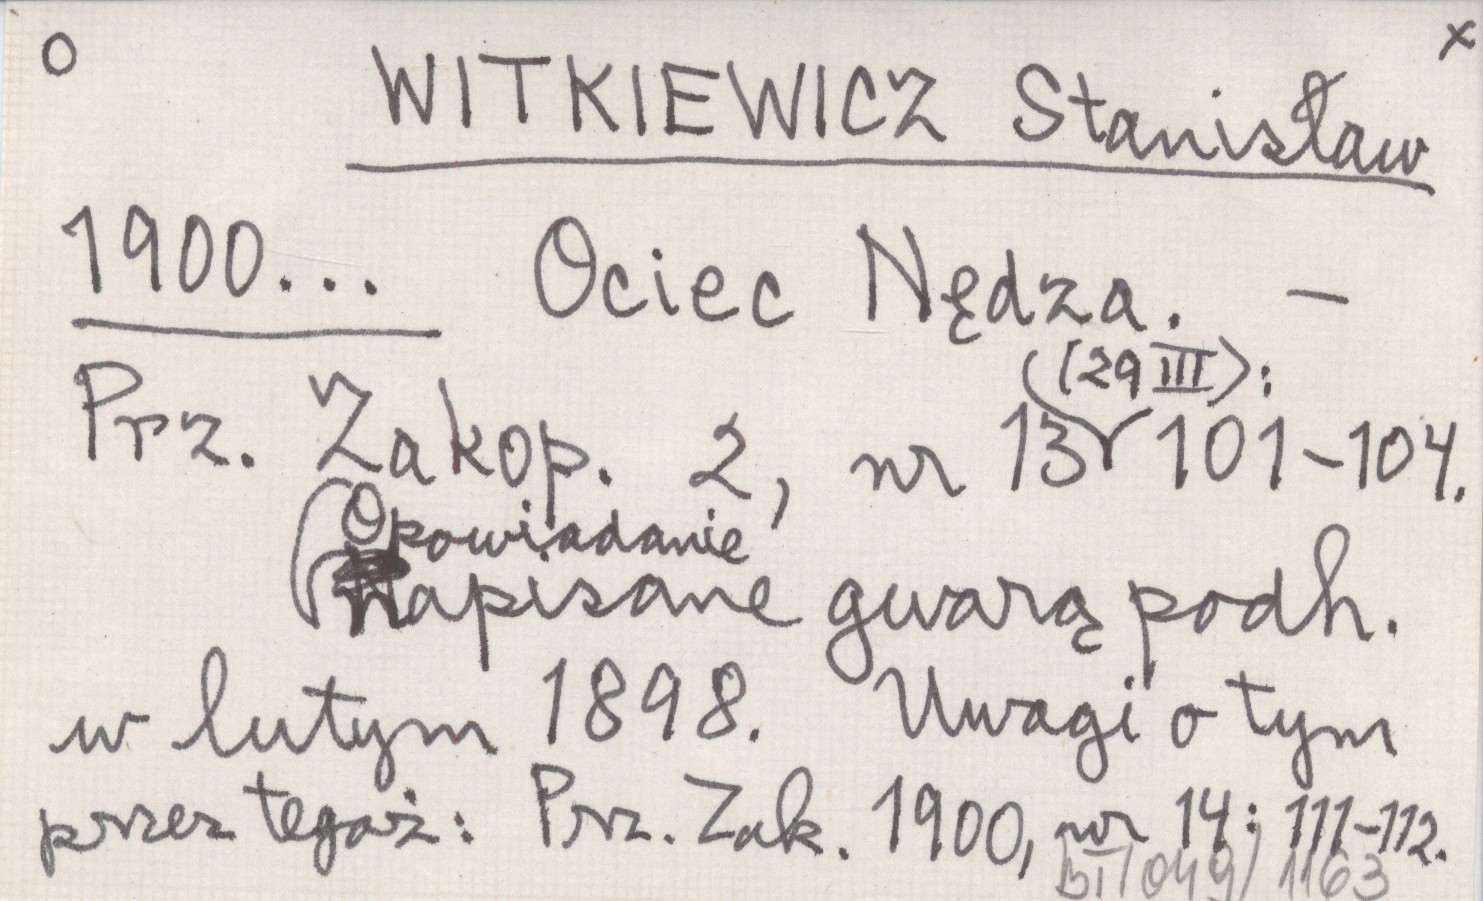 O x
WITKIEWICZ Stanisław
1900... Ociec Nędza. –
(29 III):
Prz. Zakop. 2, nr 13 101-104.
Opowiadanie
napisane gwarą podh.
w lutym 1898. Uwagi o tym
przez tegoż: Prz. Zak. 1900, nr 14: 111-112.
BT/049/1163